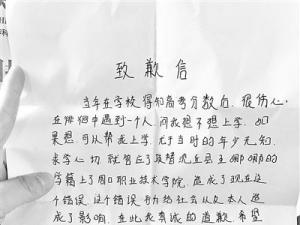 致歉信
当年在学校得知高考分数后,很伤心。
在此期中遇到一个人问我想不想上学,如
果想,可从帮我上学,尤于当时的年少无知,
求学心切,就答应了没想说在后王娜娜的
学籍上了周口职业技术学院,造成了现在这
个错误,这个错误并为给社会从及本人造
成了影响,在此我真诚的道歉,希望